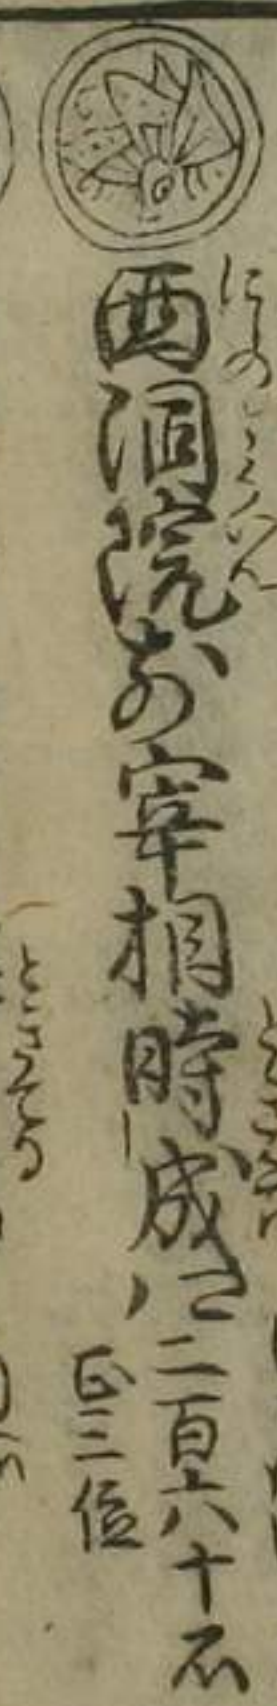 にしのとうゐん
西洞院前宰相時成卿
ときなり
二百六十石
正三位
ときてる